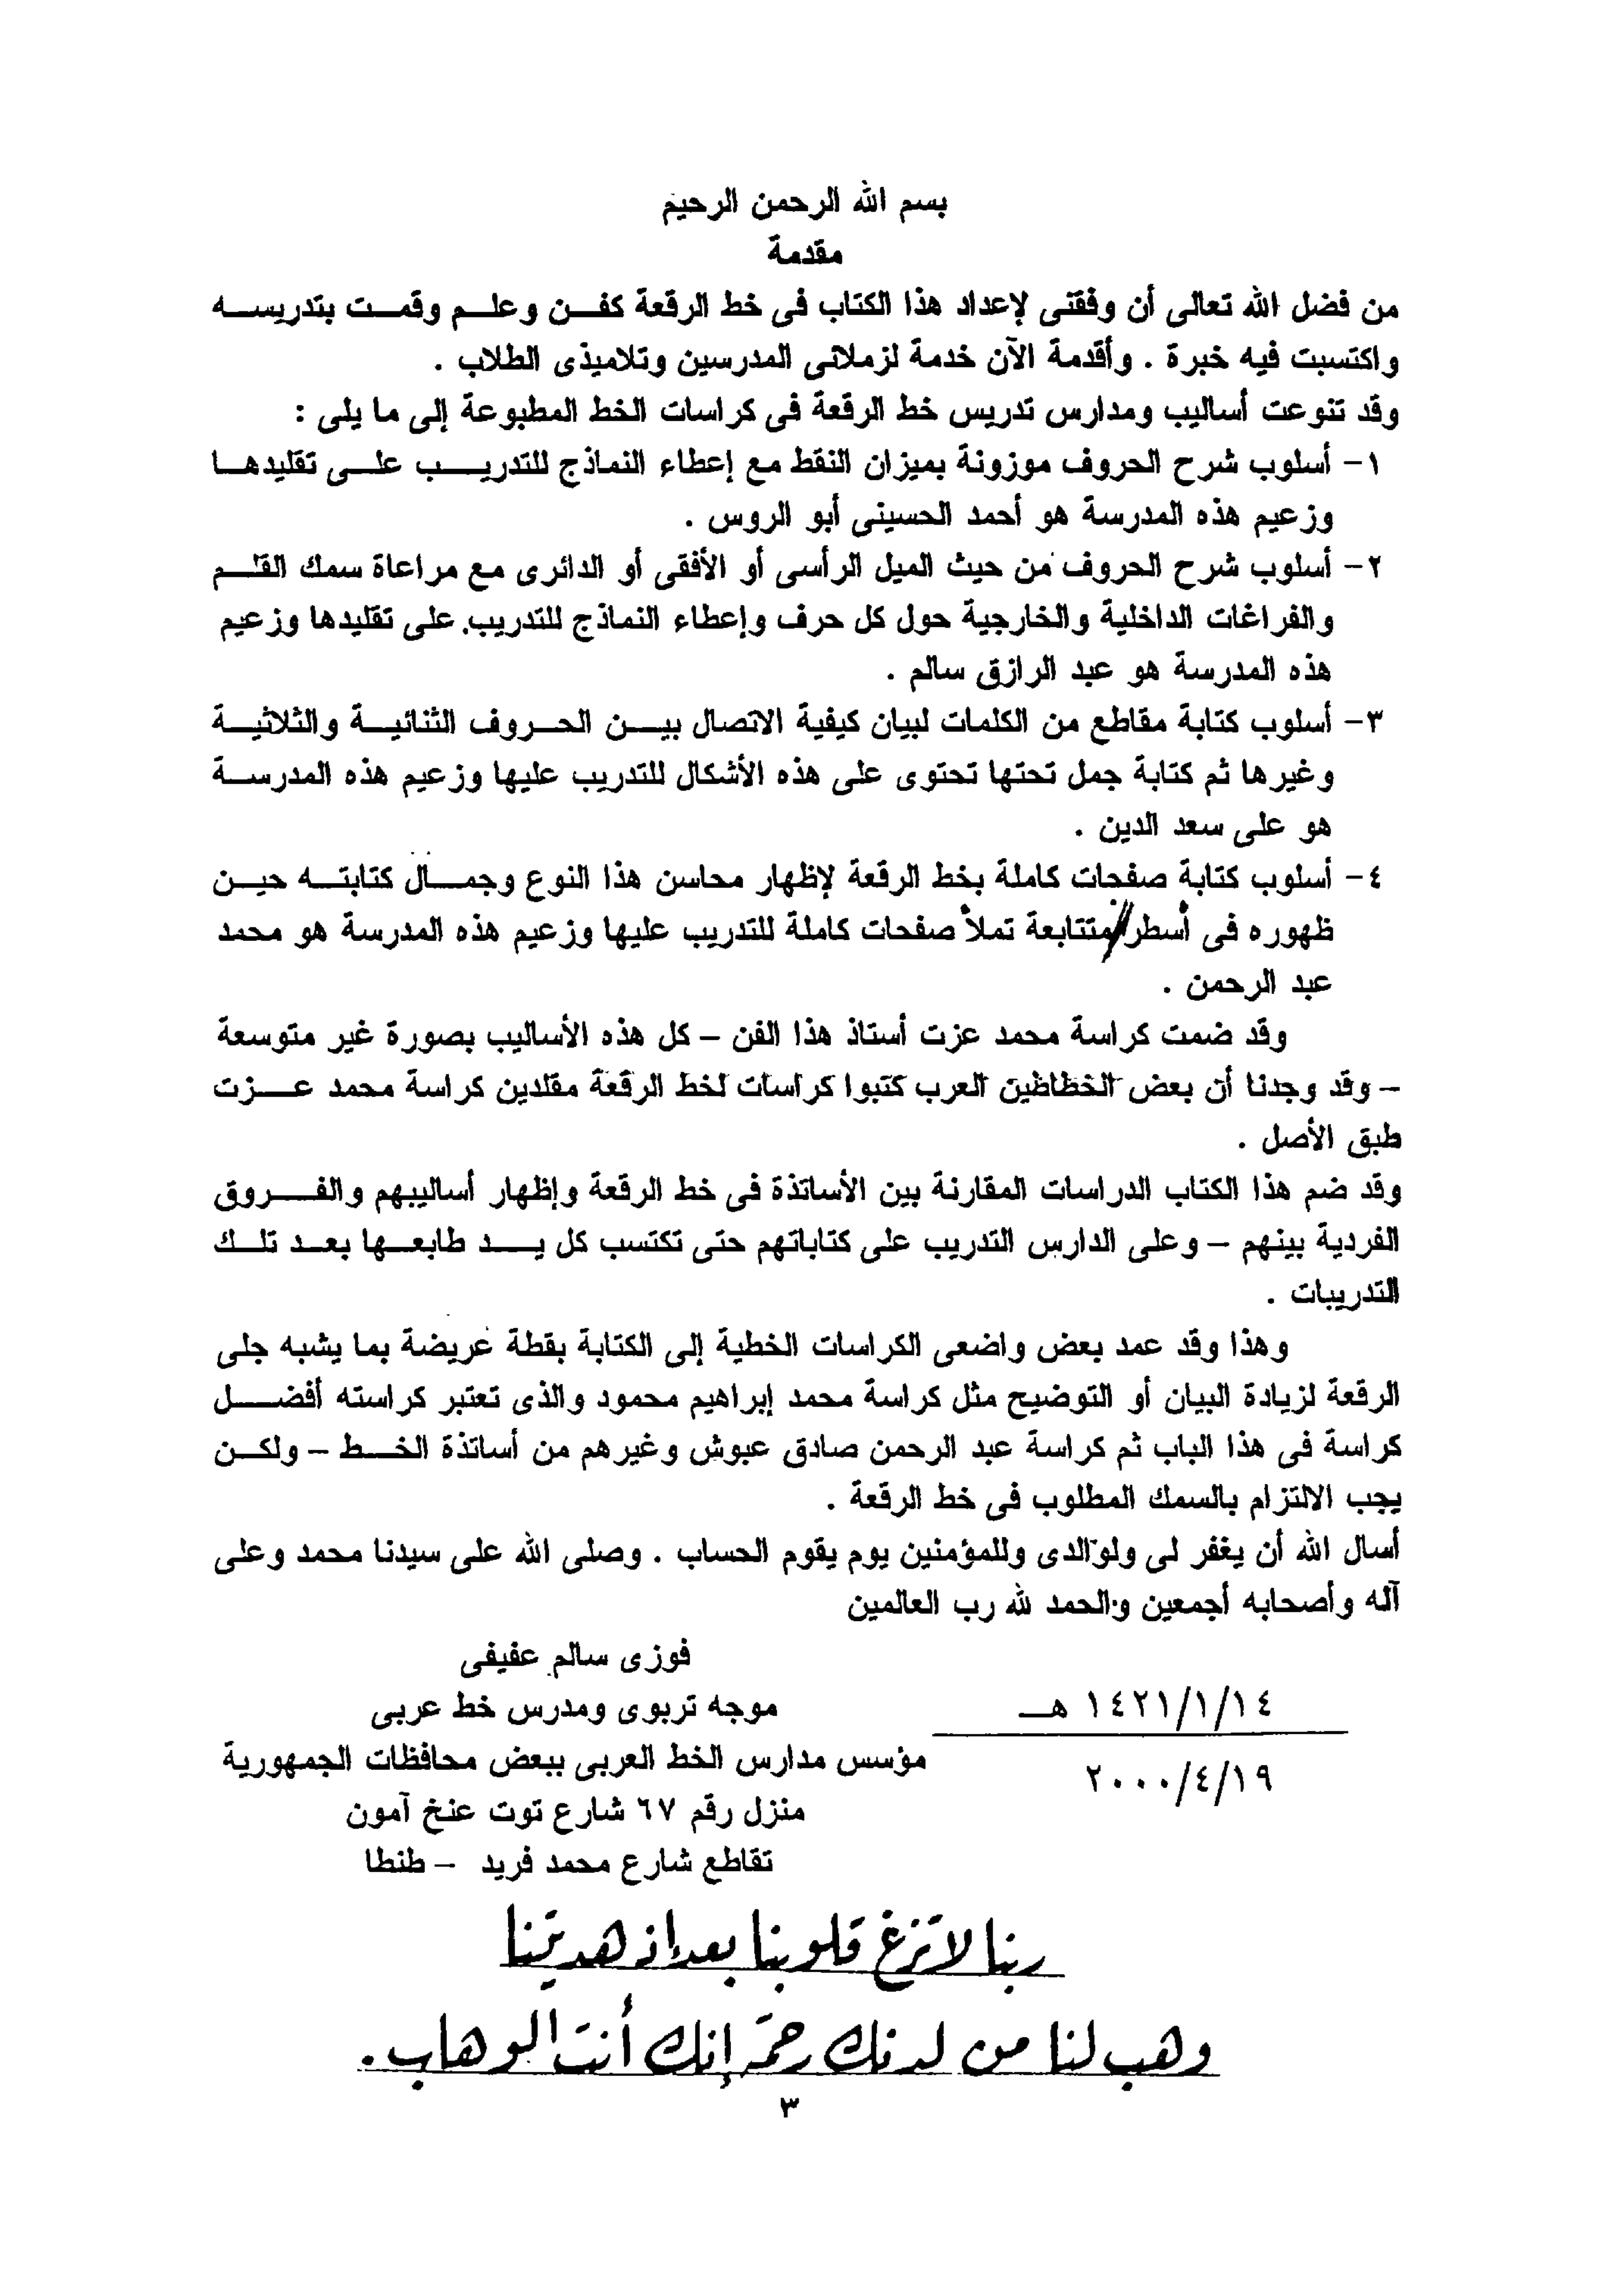 بسم الله الرحمن الرحيم
مقدمة
من فضل الله تعالى أن وفقنى لإعداد هذا الكتاب فى خط الرقعة كفن وعلم وقمت بتدريسه
واكتسبت فيه خبرة . وأقدمة الآن خدمة لزملائى المدرسين وتلاميذى الطلاب .
وقد تنوعت أساليب ومدارس تدريس خط الرقعة فى كراسات الخط المطبوعة إلى ما يلى :
١- أسلوب شرح الحروف موزونة بميزان النقط مع إعطاء النماذج للتدريب على تقليدها
وزعيم هذه المدرسة هو أحمد الحسينى أبو الروس .
٢- أسلوب شرح الحروف من حيث الميل الرأسى أو الأفقى أو الدائرى مع مراعاة سمك القلم
والفراغات الداخلية والخارجية حول كل حرف وإعطاء النماذج للتدريب على تقليدها وزعيم
هذه المدرسة هو عبد الرازق سالم .
٣- أسلوب كتابة مقاطع من الكلمات لبيان كيفية الاتصال بين الحروف الثنائية والثلاثية
وغيرها ثم كتابة جمل تحتها تحتوى على هذه الأشكال للتدريب عليها وزعيم هذه المدرسة
هو على سعد الدين .
٤- أسلوب كتابة صفحات كاملة بخط الرقعة لإظهار محاسن هذا النوع وجمال كتابته حين
ظهوره فى أسطر متتابعة تملأ صفحات كاملة للتدريب عليها وزعيم هذه المدرسة هو محمد
عبد الرحمن .
وقد ضمت كراسة محمد عزت أستاذ هذا الفن – كل هذه الأساليب بصورة غير متوسعة
– وقد وجدنا أن بعض الخطاطين العرب كتبوا كراسات لخط الرقعة مقلدين كراسة محمد عزت
طبق الأصل .
وقد ضم هذا الكتاب الدراسات المقارنة بين الأساتذة فى خط الرقعة وإظهار أساليبهم والفروق
الفردية بينهم – وعلى الدارس التدريب على كتاباتهم حتى تكتسب كل يد طابعها بعد تلك
التدريبات .
وهذا وقد عمد بعض واضعى الكراسات الخطية إلى الكتابة بقطة عريضة بما يشبه جلى
الرقعة لزيادة البيان أو التوضيح مثل كراسة محمد إبراهيم محمود والذى تعتبر كراسته أفضل
كراسة فى هذا الباب ثم كراسة عبد الرحمن صادق عبوش وغيرهم من أساتذة الخط – ولكن
يجب الالتزام بالسمك المطلوب فى خط الرقعة .
أسال الله أن يغفر لى ولوالدى وللمؤمنين يوم يقوم الحساب . وصلى الله على سيدنا محمد وعلى
آله وأصحابه أجمعين والحمد لله رب العالمين
فوزى سالم عفيفى
١٤٢١/١/١٤ هـ
موجه تربوى ومدرس خط عربى
مؤسس مدارس الخط العربى ببعض محافظات الجمهورية
٢٠٠٠/٤/١٩
منزل رقم ٦٧ شارع توت عنخ آمون
تقاطع شارع محمد فريد – طنطا
ربنا لا تزغ قلوبنا بعد إذ هديتنا
وهب لنا من لدنك رحمة إنك أنت الوهاب .
٣